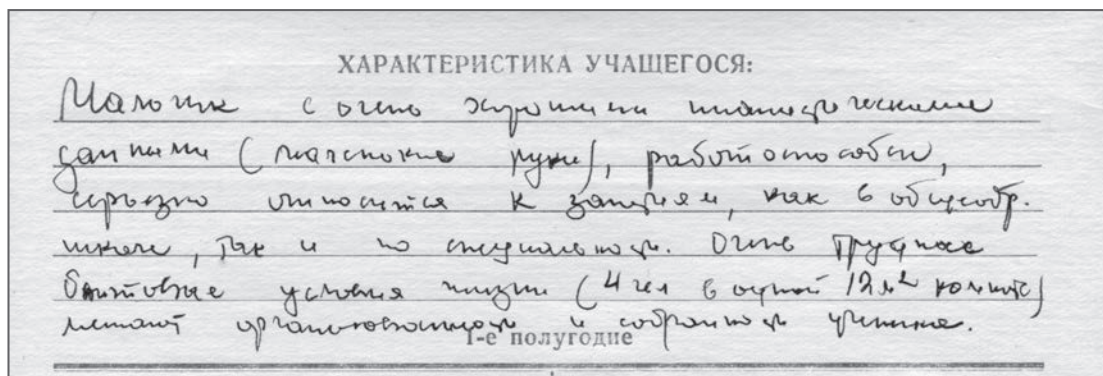 ХАРАКТЕРИСТИКА УЧАЩЕГОСЯ:
Мальчик с очень хорошими пианистическими
данными (маленькие руки), работоспособен,
серьезно относится к занятиям, как в общеобр.
школе, так и по специальности. Очень трудные
бытовые условия жизни (4 чел в одной 12 м² комнате)
мешают организованности и собранности ученика.
I-е полугодие